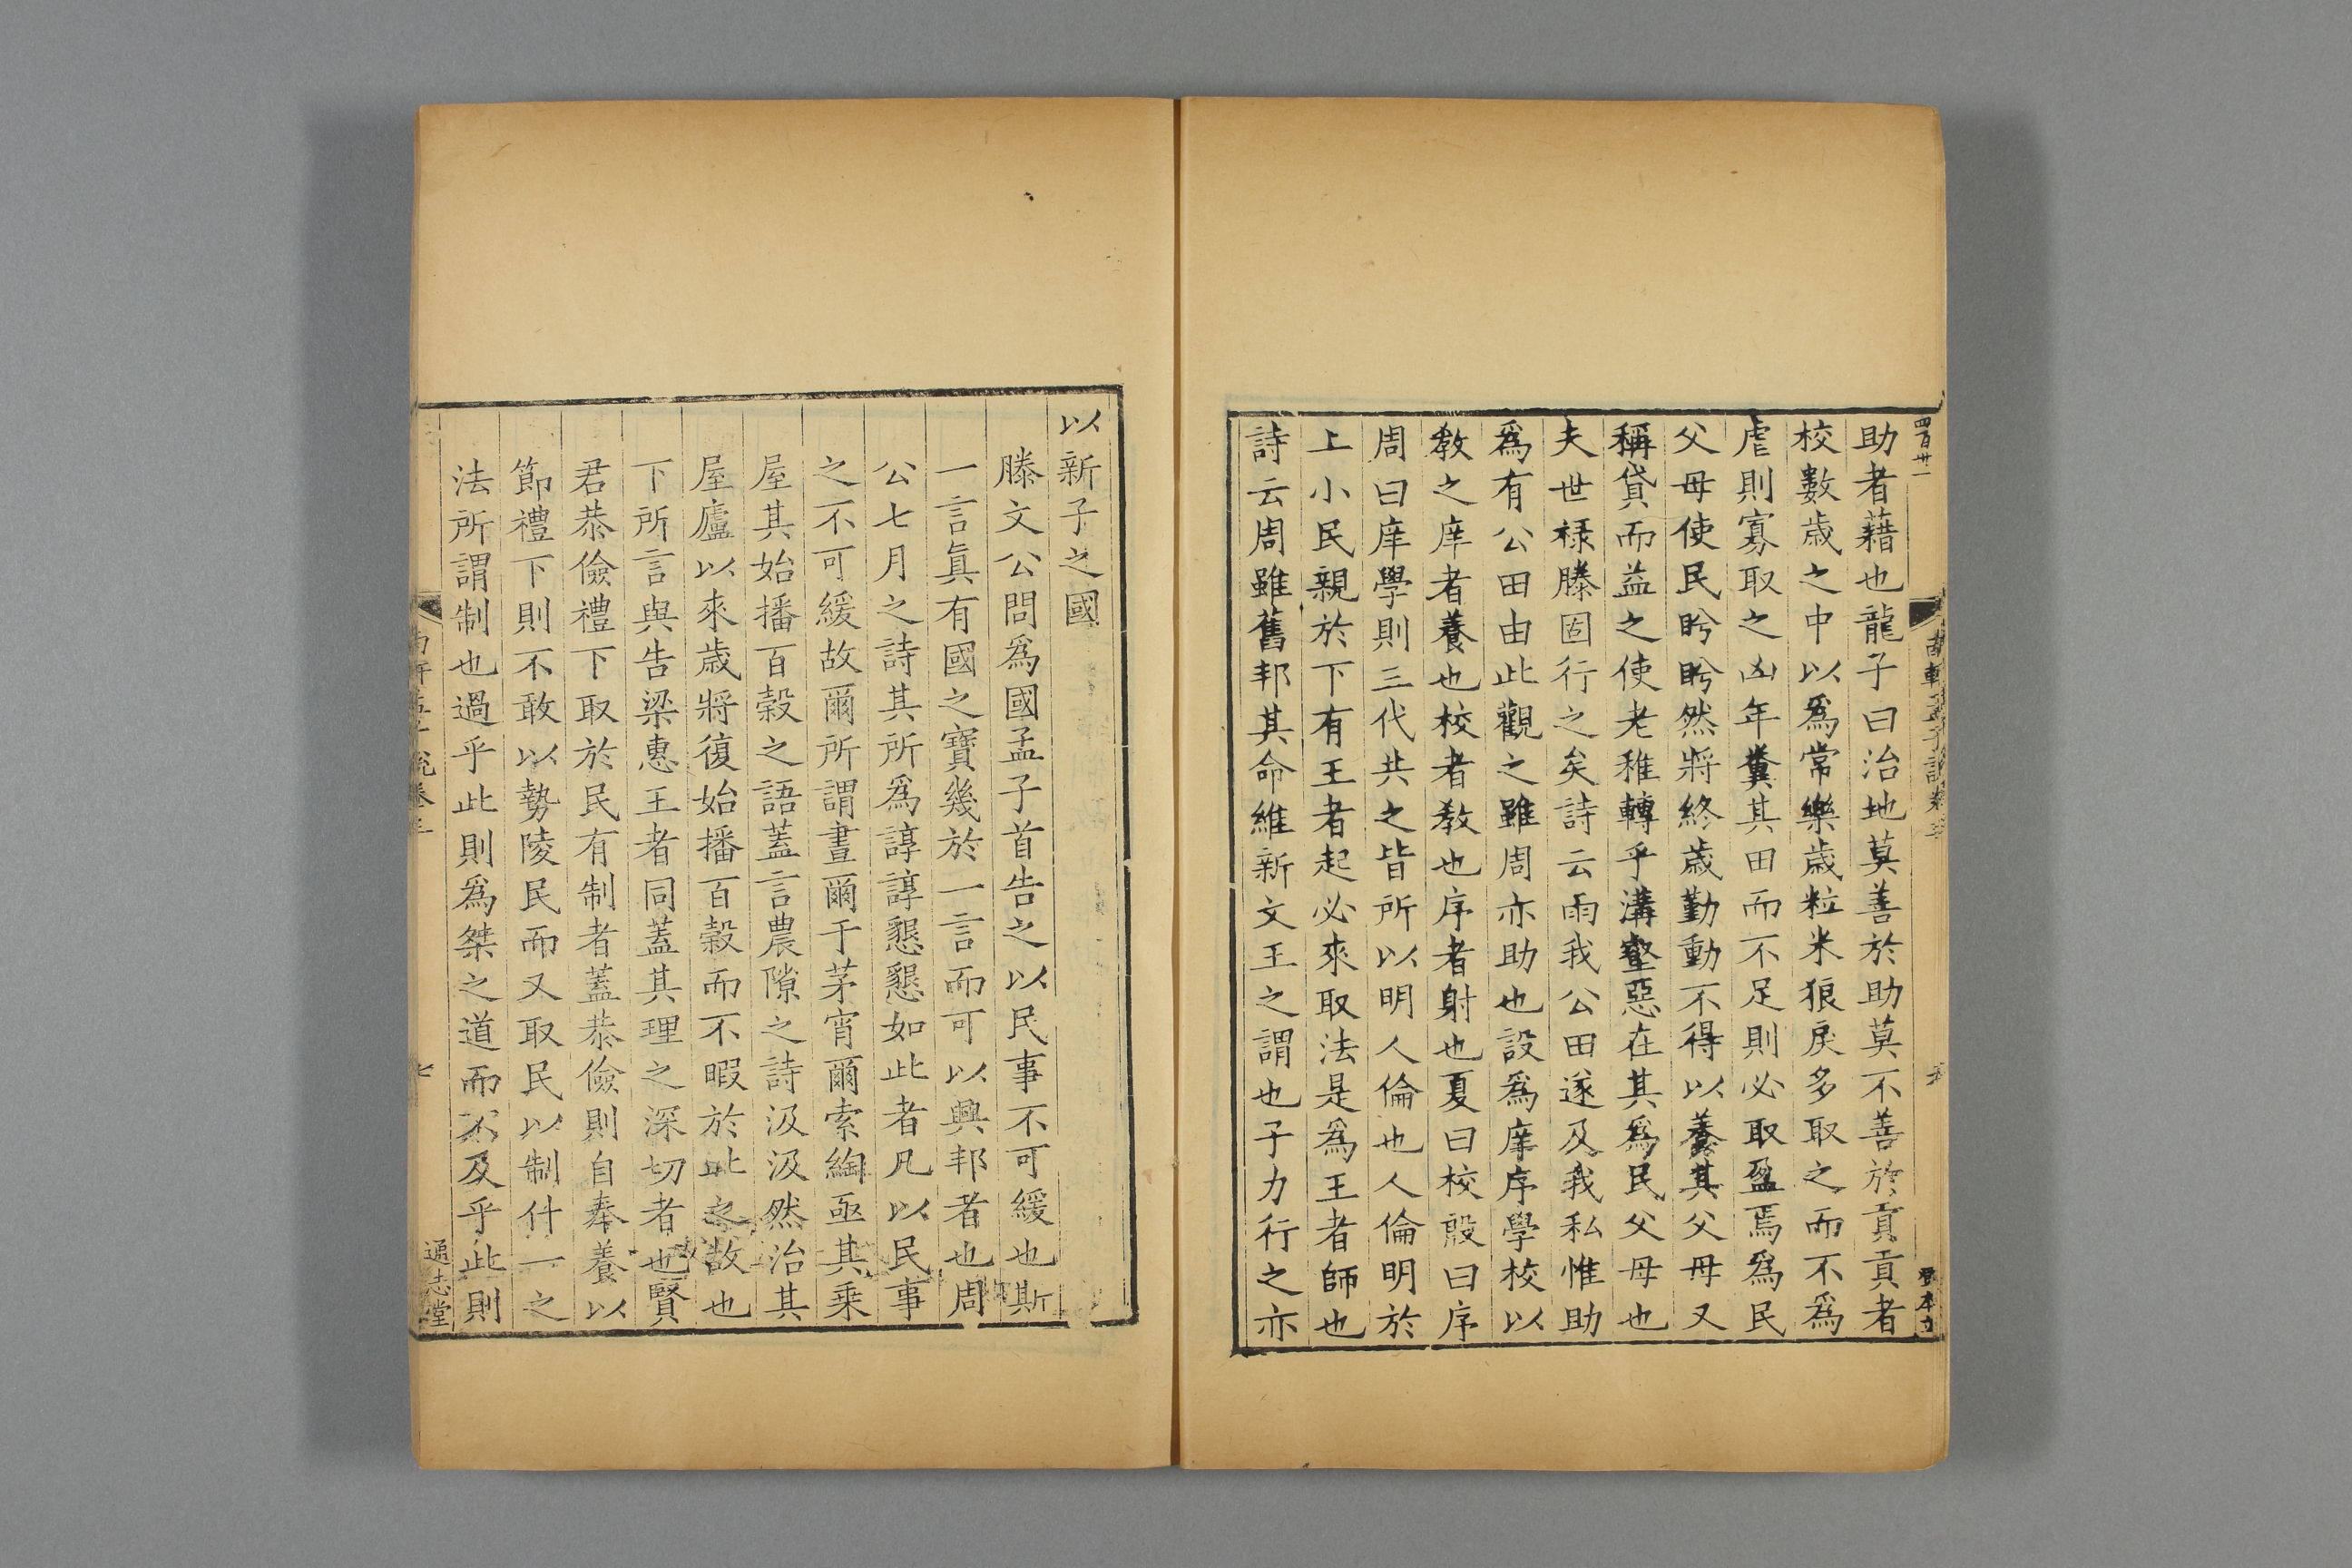 四百卅一
助者藉也龍子曰治地莫善於助莫不善於貢貢者
校數歲之中以爲常樂歲粒米狼戾多取之而不爲
虐則寡取之凶年糞其田而不足則必取盈焉爲民
父母使民盻盻然將終歲勤動不得以養其父母又
稱貸而益之使老稚轉乎溝壑惡在其爲民父母也
夫世祿滕固行之矣詩云雨我公田遂及我私惟助
爲有公田由此觀之雖周亦助也設爲庠序學校以
教之庠者養也校者教也序者射也夏曰校殷曰序
周曰庠學則三代共之皆所以明人倫也人倫明於
上小民親於下有王者起必來取法是爲王者師也
詩云周雖舊邦其命維新文王之謂也子力行之亦
以新子之國
滕文公問爲國孟子首告之以民事不可緩也斯
一言眞有國之寶幾於一言而可以興邦者也周
公七月之詩其所爲諄諄懇懇如此者凡以民事
之不可緩故爾所謂晝爾于茅宵爾索綯亟其乘
屋其始播百穀之語蓋言農隙之詩汲汲然治其
屋廬以來歲將復始播百穀而不暇於此之故也
下所言與告梁惠王者同蓋其理之深切者也賢
君恭儉禮下取於民有制者蓋恭儉則自奉養以
節禮下則不敢以勢陵民而又取民以制什一之
法所謂制也過乎此則爲桀之道而不及乎此則
南軒孟子說卷三
七
通志堂